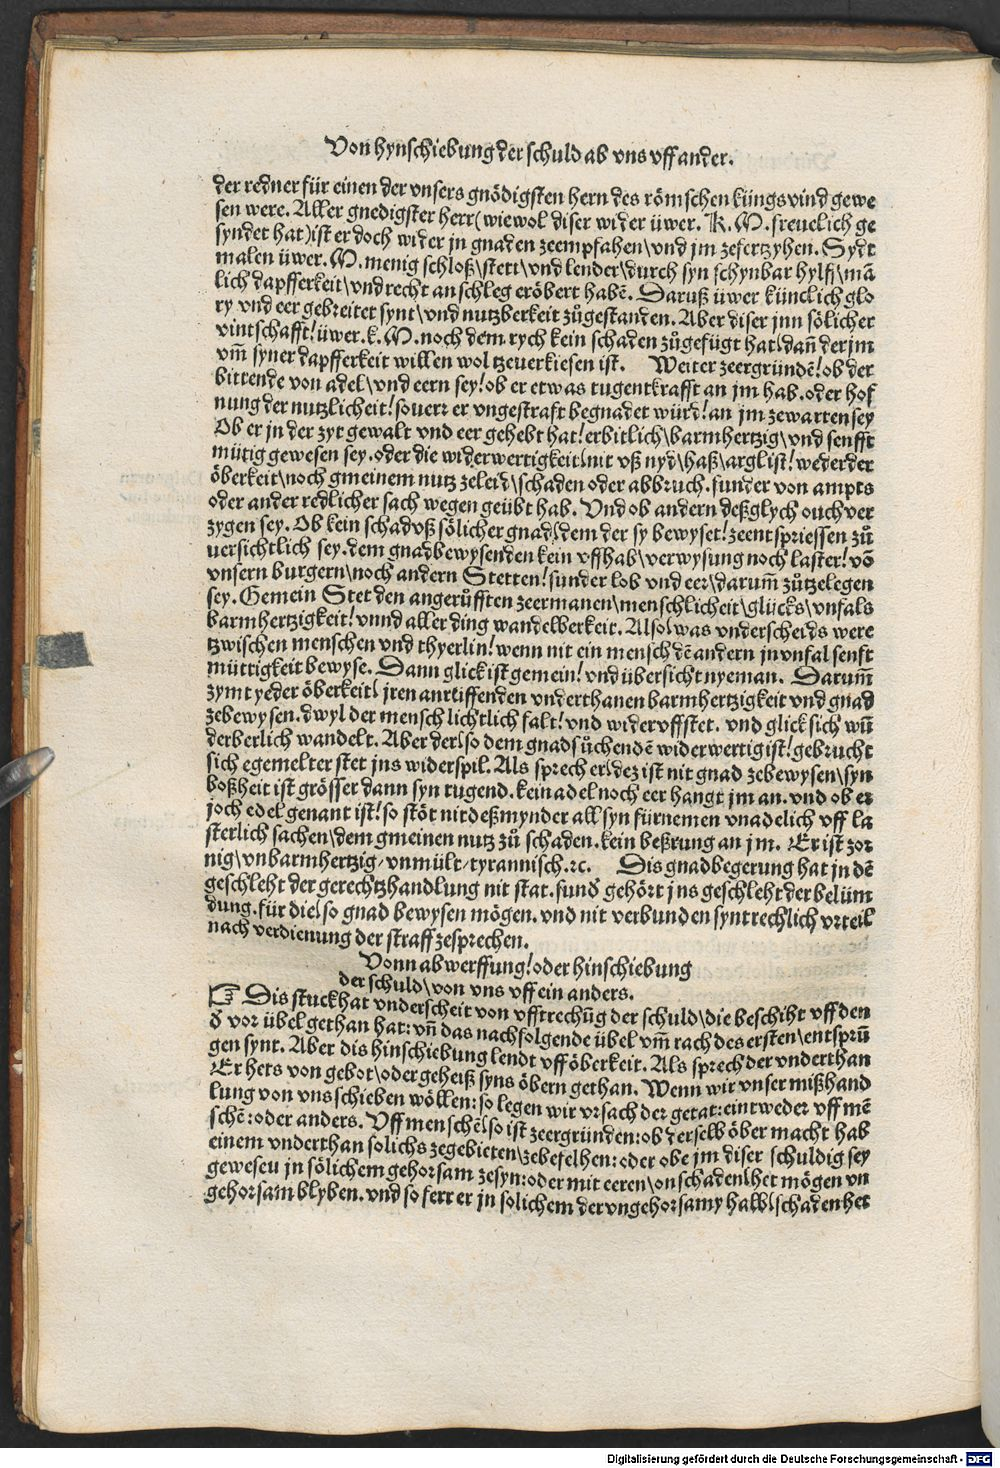 Von hynschiebung der schuld ab vns vff ander.
der redner für einen der vnsers gnödigsten hern des römschen küngs vind gewe
sen were. Aller gnedigster herr (wiewol diser wider üwer. K. M. freuelich ge
syndet hat) ist er doch wider jn gnaden zeempfahen \ vnd jm zefertzyhen. Sydt
malen üwer. M. menig schloß \ stett \ vnd lender \ durch syn schynbar hylff \ mā
lich dapfferkeit \ vnd recht anschleg eröbert habē. Daruß üwer künclich glo
ry vnd eer gebreitet synt \ vnd nutzberkeit zůgestanden. Aber diser jnn sölicher
vintschafft! üwer. k. M. noch dem rych kein schaden zůgefügt hat \ dañ der jm
vm̄ syner dapfferkeit willen wol tzeuerkiesen ist. Weiter zeergründē! ob der
bittende von adel \ vnd eern sey! ob er etwas tugentkrafft an jm hab. oder hof
nung der nutzlicheit! souerr er vngestraft begnadet würd! an jm zewarten sey
Ob er jn der zyt gewalt vnd eer gehebt hat! erbitlich \ barmhertzig \ vnd senfft
mütig gewesen sey. oder die widerwertigkeit \ nit vß nyd \ haß \ arglist! weder der
öberkeit \ noch gmeinem nutz zeleid \ schaden oder abbruch. sunder von ampts
oder ander redlicher sach wegen geübt hab. Vnd ob andern deßglych ouch ver
zygen sey. Ob kein schad vß sölicher gnad \ dem der sy bewyset! zeentspriessen zů
uersichtlich sey. dem gnadbewysenden kein vffhab \ verwysung noch laster! vō
vnsern burgern \ noch andern Stetten! sunder lob vnd eer \ darum̄ zůtzelegen
sey. Gemein Stet den angerůfften zeermanen \ menschlicheit \ glücks \ vnfals
barmhertzigkeit! vnnd aller ding wandelberkeit. Also \ was vnderscheids were
tzwischen menschen vnd thyerlin! wenn nit ein mensch dē andern jn vnfal senft
müttigkeit bewyse. Dann glick ist gemein! vnd übersicht nyeman. Darum̄
zymt yeder öberkeit \ jren anrüffenden vnderthanen barmhertzigkeit vnd gnad
zebewysen. dwyl der mensch lichtlich falt! vnd wider vffstet. vnd glick sich wū
derberlich wandelt. Aber der \ so dem gnadsůchendē widerwertig ist! gebrucht
sich egemelter stet jns widerspil. Als sprech er \ dez ist nit gnad zebewysen \ syn
boßheit ist grösser dann syn tugend. kein adel noch eer hangt jm an. vnd ob er
joch edel genant ist! so stöt nit deßmynder all syn fürnemen vnadelich vff la
sterlich sachen \ dem gmeinen nutz zů schaden. kein beßrung an jm. Er ist zor
nig \ vnbarmhertzig / vnmült / tyrannisch. ꝛc. Dis gnadbegerung hat jn dē
geschleht der gerechtzhandlung nit stat. sund̄ gehört jns geschleht der belüm
dung. für die \ so gnad bewysen mögen. vnd nit verbunden synt rechlich vrteil
nach verdienung der straff zesprechen.
Vonn abwerffung! oder hinschiebung
der schuld \ von vns vff ein anders.
☞ Dis stuck hat vnderscheit von vfftrechūg der schuld \ die beschiht vff den
d̄ vor übel gethan hat: vñ das nachfolgende übel vm̄ rach des ersten \ entsprū
gen synt. Aber dis hinschiebung lendt vff öberkeit. Als sprech der vnderthan
Er hets von gebot \ oder geheiß syns öbern gethan. Wenn wir vnser mißhand
lung von vns schieben wöllen: so legen wir vrsach der getat: eintweder vff mē
schē: oder anders. Vff menschē \ so ist zeergründen: ob derselb öber macht hab
einem vnderthan solichs zegebieten \ zebefelhen: oder obe jm diser schuldig sey
geweseu jn sölichem gehorsam zesyn: oder mit eeren \ on schaden \ het mögen vn
gehorsam blyben. vnd so ferr er jn solichem der vngehorsamy halb \ schaden het
Digitalisierung gefördert durch die Deutsche Forschungsgemeinschaft - DFG